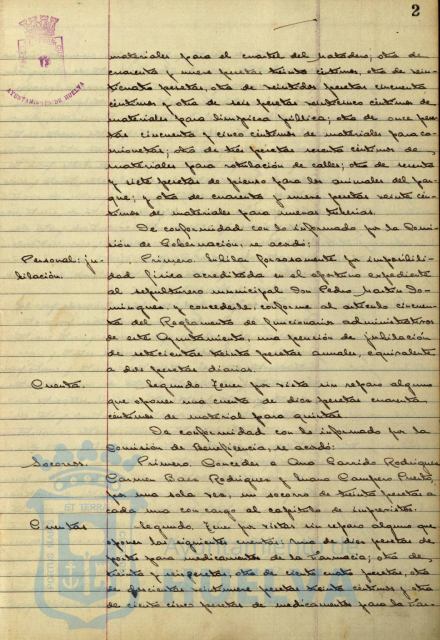 2
AYUNTAMIENTO DE HUELVA
materiales para el cuartel del matadero; otra de
cuarenta y nueve pesetas treinta céntimos, otra de vein-
ticuatro pesetas, otra de veintidos pesetas cincuenta
céntimos y otra de seis pesetas veinticinco céntimos de
materiales para limpieza pública; otra de once pese-
tas cincuenta y cinco céntimos de materiales para ca-
mionetas; otra de tres pesetas sesenta céntimos de
materiales para rotulación de calles; otra de sesenta
y siete pesetas de pienso para los animales del par-
que; y otra de cuarenta y nueve pesetas veinte cén-
timos de materiales para nuevas tuberías.
De conformidad con lo informado por la Comi-
sión de Gobernación, se acordó:
Personal: ju-
bilación.
Primero. Jubilar forzosamente por imposibili-
dad física acreditada en el oportuno expediente
al sepulturero municipal Don Pedro Martín Do-
minguez, y concederle, conforme al artículo cincuen-
ta del Reglamento de funcionarios administrativos
de este Ayuntamiento, una pensión de jubilación
de setecientas treinta pesetas anuales, equivalente
a dos pesetas diarias.
Cuenta.
Segundo. Tener por vista sin reparo alguno
que oponer una cuenta de dos pesetas cuarenta
céntimos de material para quintas
De conformidad con lo informado por la
Comisión de Beneficencia, se acordó:
Socorros.
Primero. Conceder a Ana Garrido Rodriguez
Carmen Baes Rodriguez y Juana Campero Puerto,
por una sola vez, un socorro de treinta pesetas a
cada una con cargo al capítulo de imprevistos.
Cuentas
Segundo. Tener por vistas sin reparo alguno que
oponer las siguientes cuentas: Una de diez pesetas de
portes para medicamentos de la Farmacia; otra de
treinta y seis pesetas, otra de ciento cuatro pesetas, otra
de doscientas veintinueve pesetas treinta céntimos y otra
de ciento cinco pesetas de medicamentos para la Far-